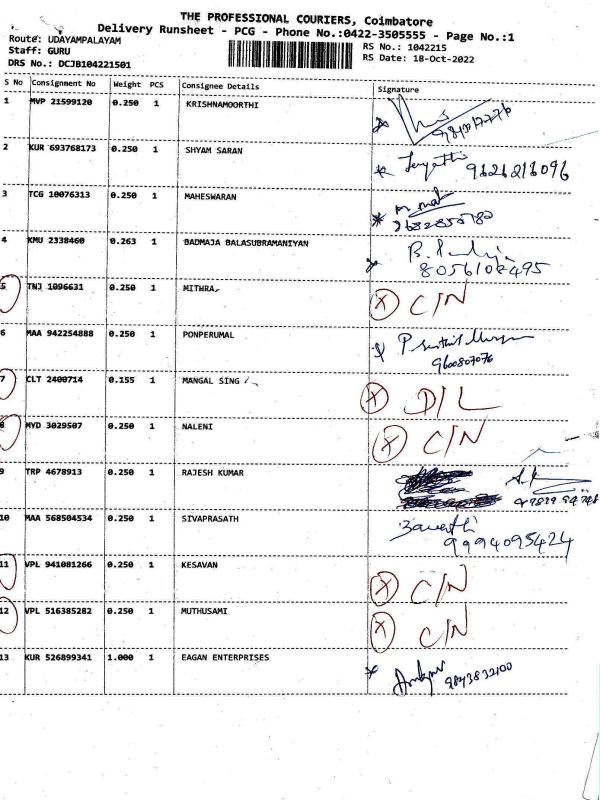 THE PROFESSIONAL COURIERS, Coimbatore
Delivery Runsheet - PCG - Phone No.:0422-3505555 - Page No.:1
Route: UDAYAMPALAYAM
Staff: GURU
DRS No.: DCJB104221501
RS No.: 1042215
RS Date: 18-Oct-2022
S No Consignment No Weight PCS Consignee Details Signature
1 MVP 21599120 0.250 1 KRISHNAMOORTHI
2 KUR 693768173 0.250 1 SHYAM SARAN 9626216096
3 TCG 10076313 0.250 1 MAHESWARAN
4 KMU 2338460 0.263 1 BADMAJA BALASUBRAMANIYAN
8056102495
5 TNJ 1096631 0.250 1 MITHRA X C/N
6 MAA 942254888 0.250 1 PONPERUMAL
9600807076
7 CLT 2400714 0.155 1 MANGAL SING X D/L
8 MYD 3029507 0.250 1 NALENI X C/N
9 TRP 4678913 0.250 1 RAJESH KUMAR
10 MAA 568504534 0.250 1 SIVAPRASATH
9994095424
11 VPL 941081266 0.250 1 KESAVAN X C/N
12 VPL 516385282 0.250 1 MUTHUSAMI X C/N
13 KUR 526899341 1.000 1 EAGAN ENTERPRISES 9843832100